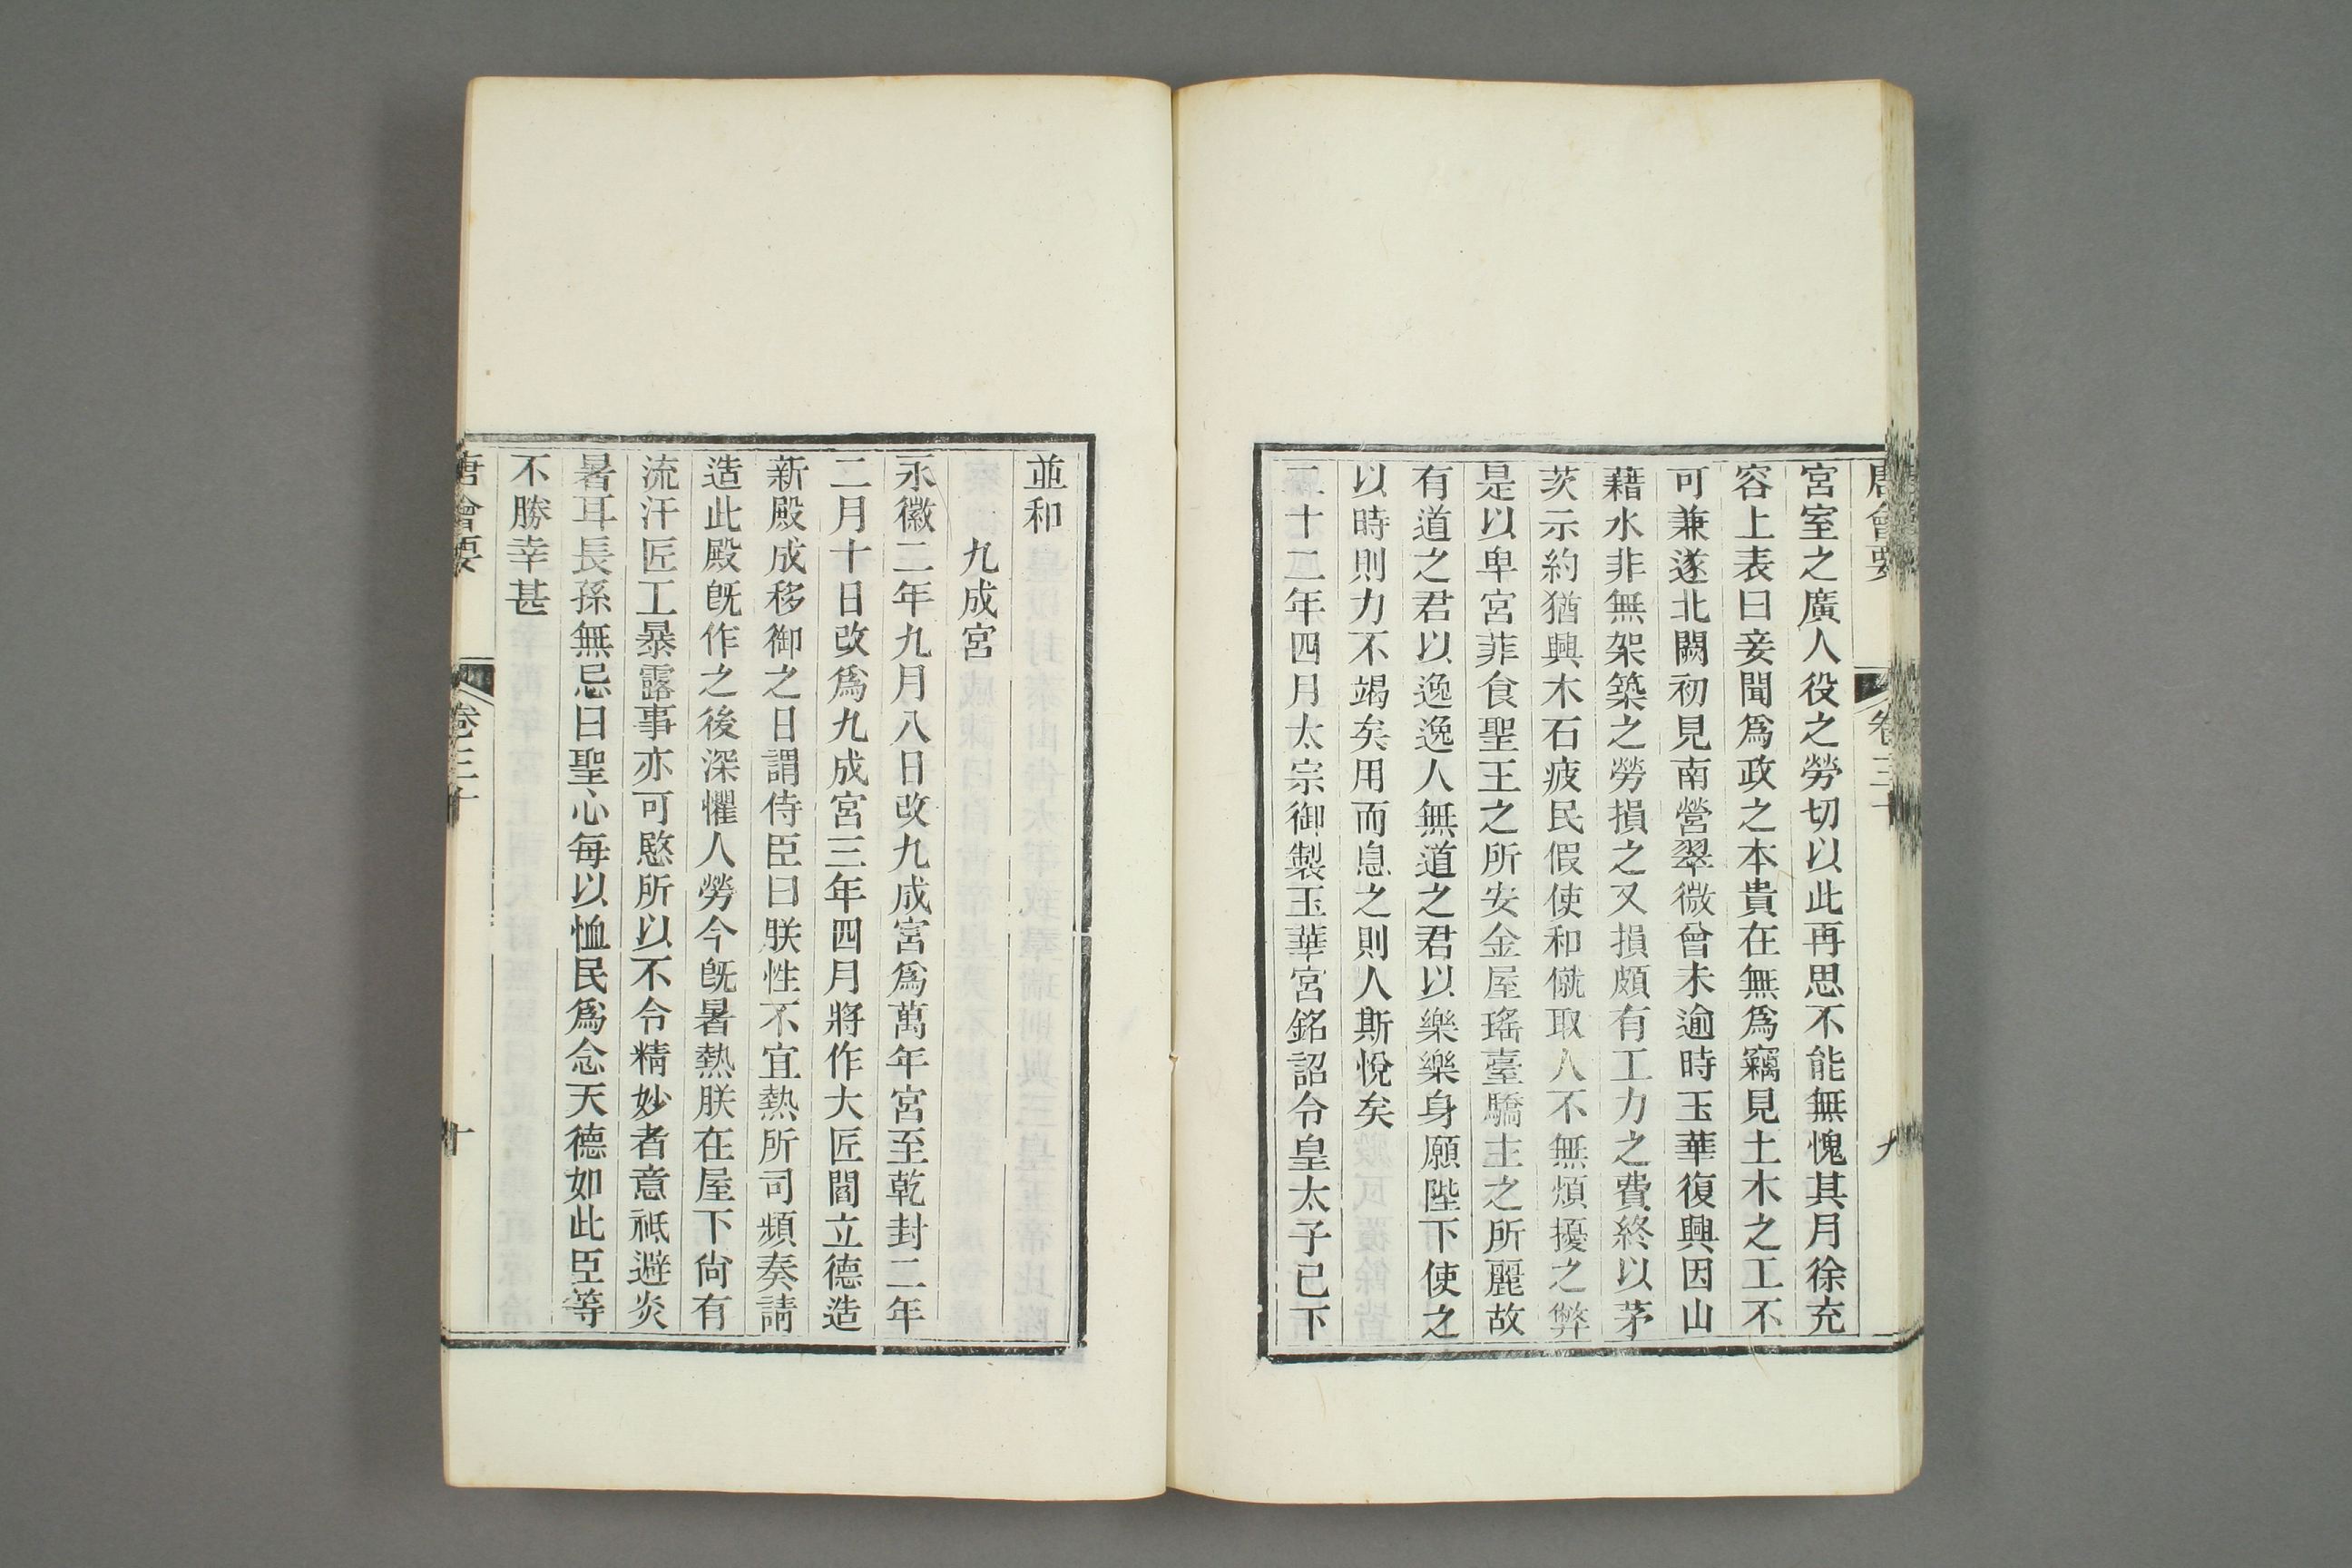 唐會要 卷三十 九
宮室之廣人役之勞切以此再思不能無愧其月徐充
容上表曰妾聞爲政之本貴在無爲竊見土木之工不
可兼遂北闕初見南營翠微曾未逾時玉華復興因山
藉水非無架築之勞損之又損頗有工力之費終以茅
茨示約猶興木石疲民假使和僦取人不無煩擾之弊
是以卑宮菲食聖王之所安金屋瑤臺驕主之所麗故
有道之君以逸逸人無道之君以樂樂身願陛下使之
以時則力不竭矣用而息之則人斯悅矣
二十二年四月太宗御製玉華宮銘詔令皇太子已下
並和
九成宮
永徽二年九月八日改九成宮爲萬年宮至乾封二年
二月十日改爲九成宮三年四月將作大匠閻立德造
新殿成移御之日謂侍臣曰朕性不宜熱所司頻奏請
造此殿旣作之後深懼人勞今旣暑熱朕在屋下尙有
流汗匠工暴露事亦可愍所以不令精妙者意祗避炎
暑耳長孫無忌曰聖心每以恤民爲念天德如此臣等
不勝幸甚
唐會要 卷三十 十